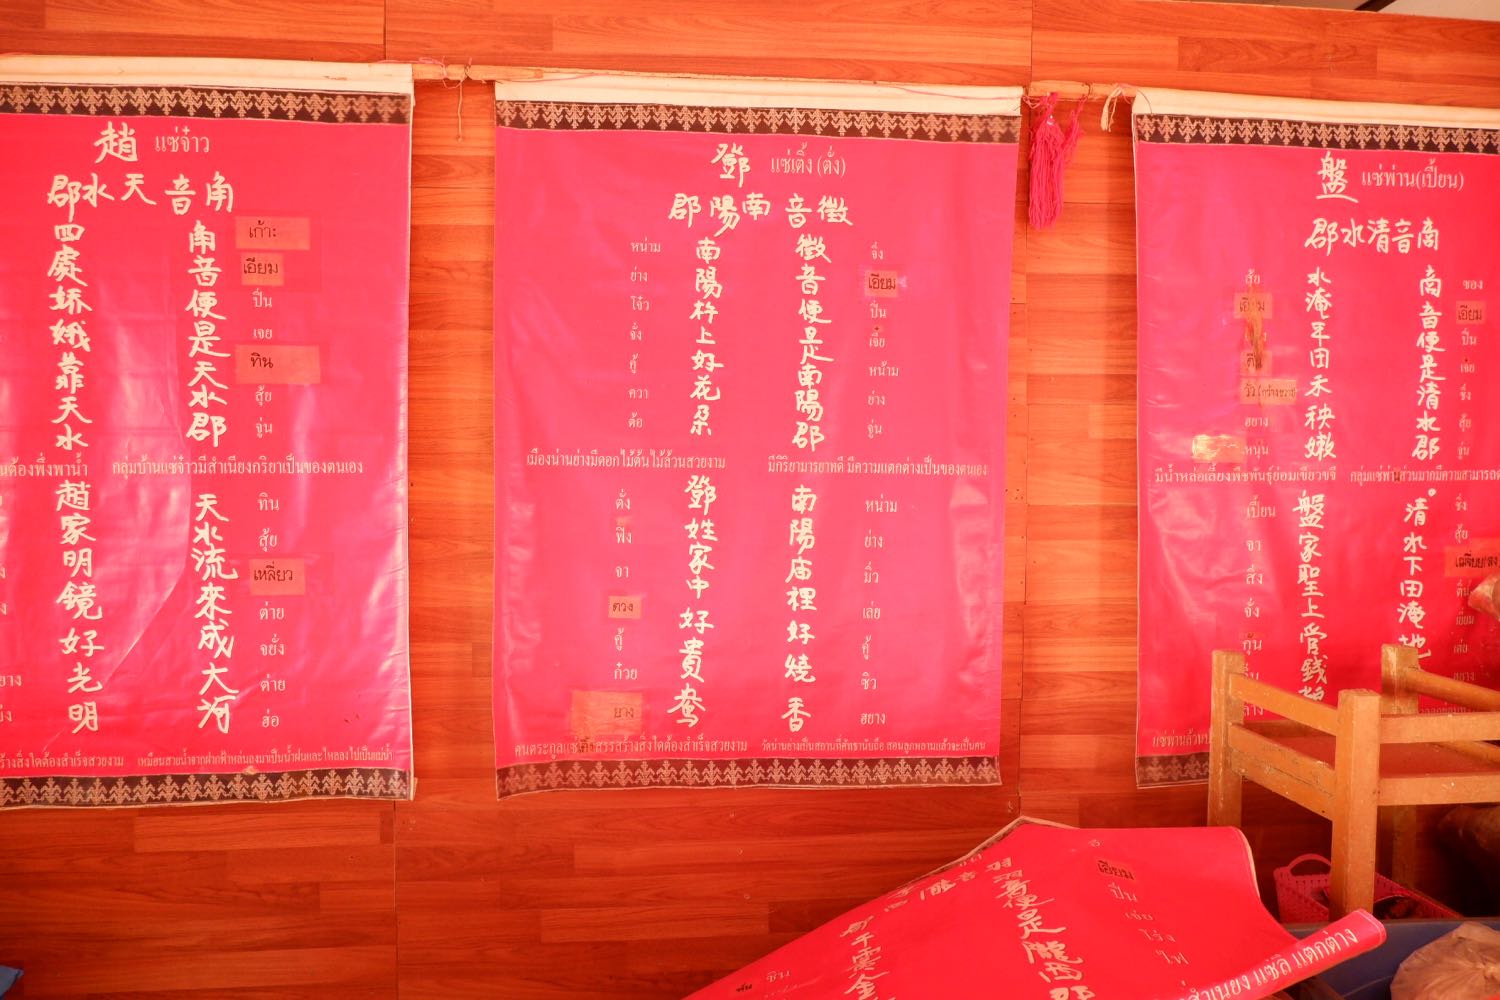 趙 แซ่จ๋าว
郡水天音角
角音便是天水郡
เก้าะ
เอียม
ปื่น
เจย
ทิน
สุ้ย
จู่น
四處娇娥靠天水
นต้องพึ่งพาน้ำ
กลุ่มบ้านแซ่จ๋าวมีสำเนียงกริยาเป็นของตนเอง
天水流來成大河
ทิน
สุ้ย
เหลี่ยว
ต่าย
จยั่ง
ต่าย
ฮ่อ
趙家明鏡好光明
ร้างสิ่งใดต้องสำเร็จสวยงาม
เหมือนสายน้ำจากฝากฟ้าหล่นลงมาเป็นน้ำฝนและไหลลงไปเป็นแม่น้ำ
鄧 แซ่เติ้ง (ตั่ง)
郡陽南音徵
徵音便是南陽郡
จึ่ง
เอียม
ปื่น
เจี๋ย
หน้าม
ย่าง
จู่น
南陽杵上好花朵
หน่าม
ย่าง
โจ๋ว
จั่ง
คู้
ควา
ต้อ
เมืองน่านย่างมีดอกไม้ต้นไม้ล้วนสวยงาม
มีกิริยามารยาทดี มีความแตกต่างเป็นของตนเอง
南陽庙裡好燒香
หน่าม
ย่าง
มิ่ว
เล่ย
คู้
ซิว
ฮยาง
鄧姓家中好貴鸯
ตั่ง
ฟิง
จา
ตวง
คู้
ก๋วย
ยาง
คนตระกูลแซ่ตั้งสรรสร้างสิ่งใดต้องสำเร็จสวยงาม
วัดน่านยางเป็นสถานที่ศัทธานับถือ สอนลูกหลานแล้วจะเป็นคน
盤 แซ่พ่าน(เปี้ยน)
郡水清音商
商音便是清水郡
ซอง
เอียม
ปื่น
เจ๋ย
ซึ่ง
สุ้ย
จู่น
水淹年田禾秧嫩
สุ้ย
ฮยาง
หนุ่น
มีน้ำหล่อเลี้ยงพืชพันธุ์ย่อมเขียวขจี
清水下田淹地
ซึ่ง
สุ้ย
盤家聖上管錢
เปี้ยน
จา
สิ่ง
จั่ง
กุ้น
羽音便是隴西郡
เอียม
ปื่น
เจ๋ย
สำเนียง แซ่ลี แตกต่าง